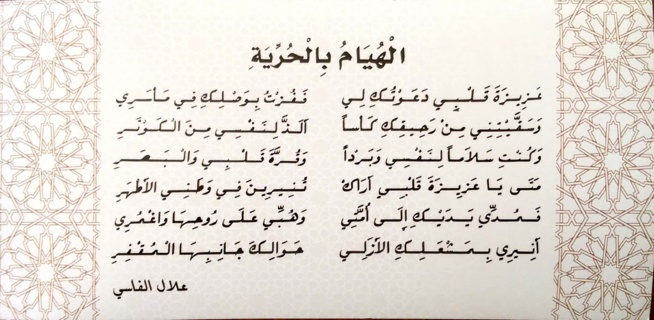 الْهُيَامُ بِالْحُرِّيَةِ
عَزِيزَةَ قَلْبِي دَعَوْتُكِ لِي فَفُزْتُ بِوَصْلِكِ فِي مَأسَرِي
وَسَقَّيْتِنِي مِنْ رَحِيقِكِ كَأساً أَلَذَّ لِنَفْسِي مِنَ الْكَوْثَرِ
وَكُنْتِ سَلَاماً لِنَفْسِي وَبَرْداً وَقُرَّةَ قَلْبِي وَالْبَصَرِ
مَتَى يَا عَزِيزَةَ قَلْبِي أَرَاكْ تُنِيرِينَ فِي وَطَنِي الأَطْهَرِ
فَمُدِّي يَدَيْكِ إِلَى أُمَّتِي وَهُبِّي عَلَى رُوحِهَا وَاغْمُرِي
أَنِيرِي بِمَشْعَلِكِ الأَزَلِي حَوَالِكَ جَانِبِهَا الْمُقْفِرِ
علال الفاسي